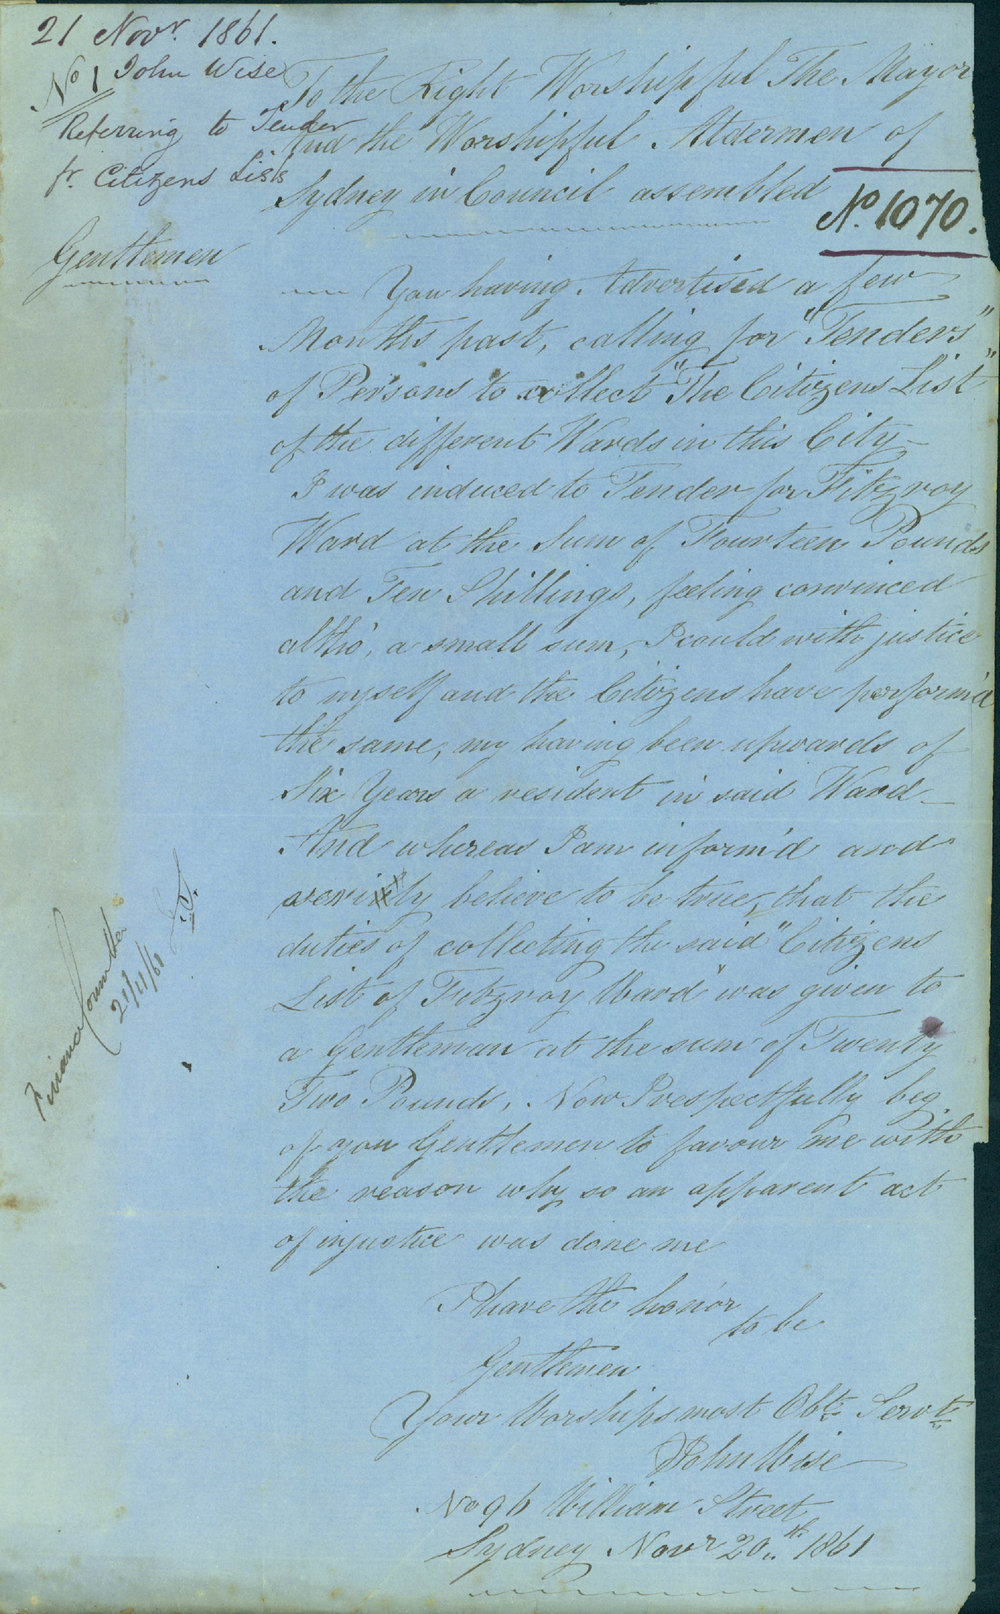 21 Novr. 1861.
No 1 John Wise
Referring to Tender
fr. Citizens Lists
To the Right Worshipful The Mayor
And the Worshipful Aldermen of
Sydney in Council assembled
No. 1070.
Gentlemen
You having Advertised a few
Months past, calling for "Tenders"
of Persons to collect "The Citizens List"
of the different Wards in this City –
I was induced to Tender for Fitzroy
Ward at the Sum of Fourteen Pounds
and Ten Shillings, feeling convinced
altho', a small sum, I could with justice
to myself and the Citizens have perform'd
the same, my having been upwards of
Six Years a resident in said Ward –
And whereas I am inform'd and
verily believe to be true, that the
duties of collecting the said "Citizens
List of Fitzroy Ward" was given to
a Gentleman at the sum of Twenty
Two Pounds, Now I respectfully beg
of you Gentlemen to favour me with
the reason why so an apparent act
of injustice was done me
I have the honor
to be
Gentlemen
Your Worships most Obt. Servt.
John Wise
No 96 William Street
Sydney Novr 20th 1861
Finance Committee
21/11/61